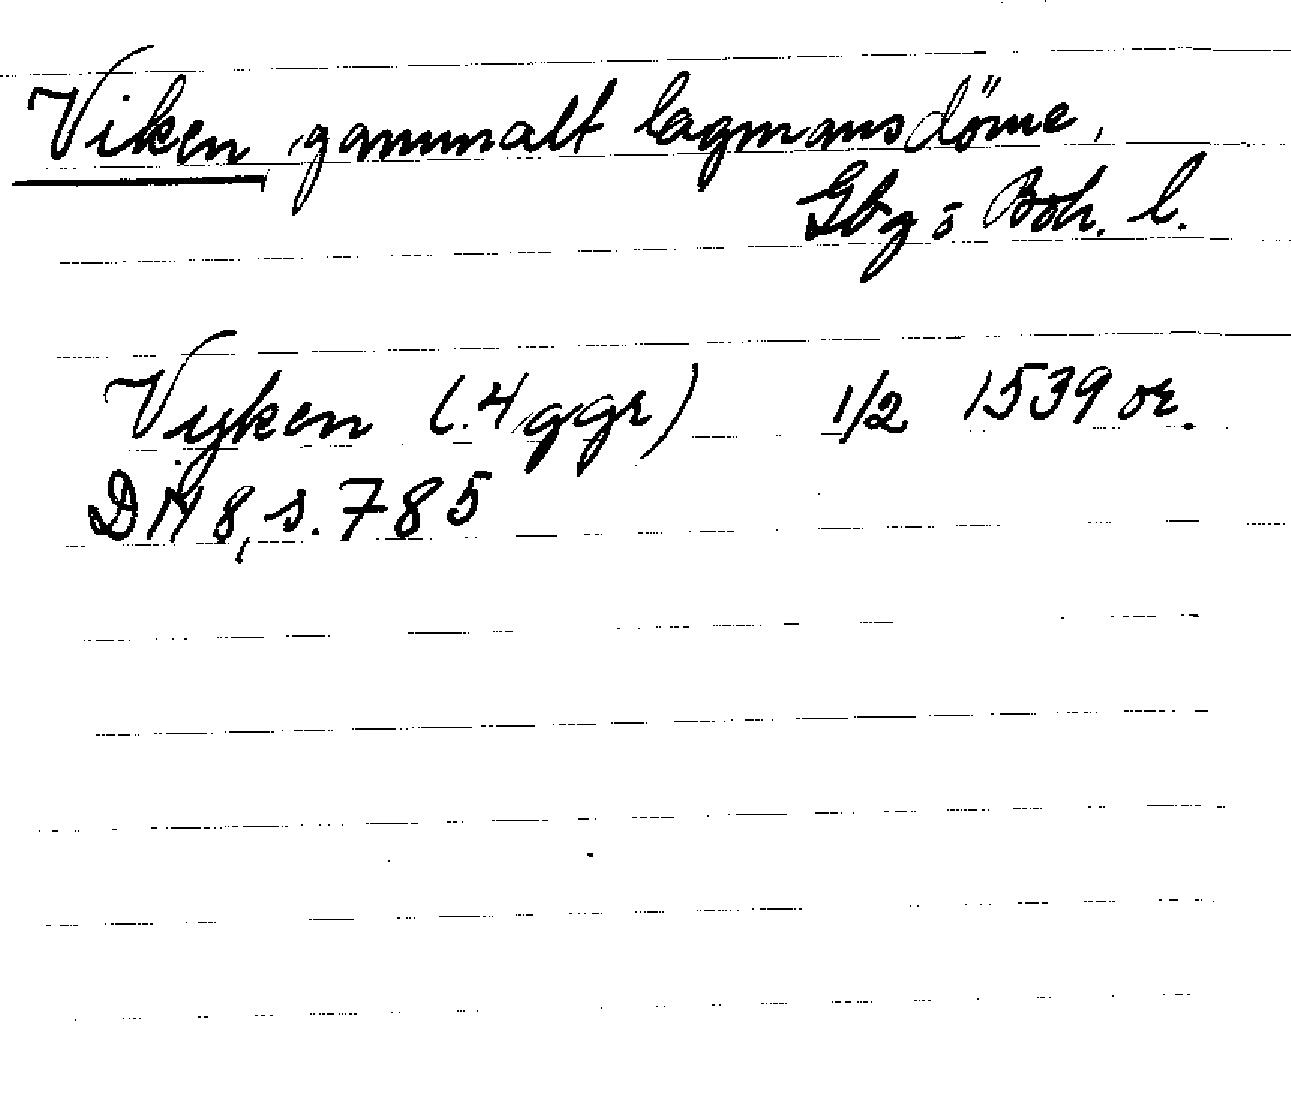 Viken, gammalt lagmansdöme,
Gbg o Boh. l.
Vijken (.4 ggr) 1/2 1539 or.
DN 8, s. 785